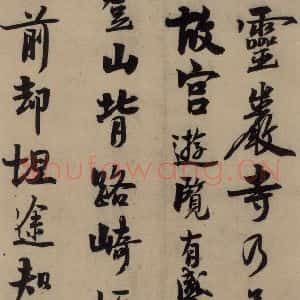 靈巖寺乃
故宮遊覽有感
登山背路崎
前却坦途知
shufawang.CN